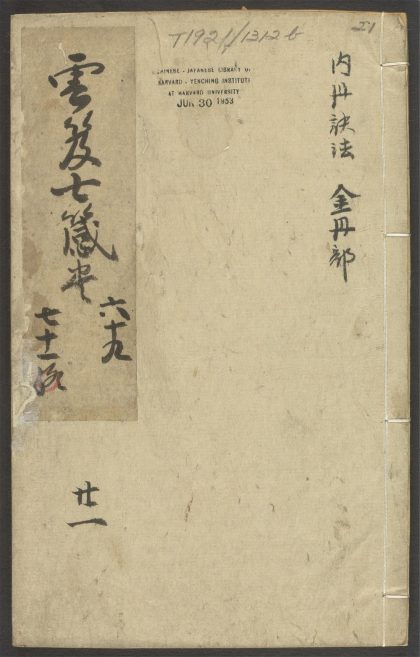 T1921/1312b
21
CHINESE - JAPANESE LIBRARY OF
HARVARD - YENCHING INSTITUTE
AT HARVARD UNIVERSITY
JUN 30 1953
內丹訣法 金丹部
雲笈七籤卷
六十九
七十一
廿一